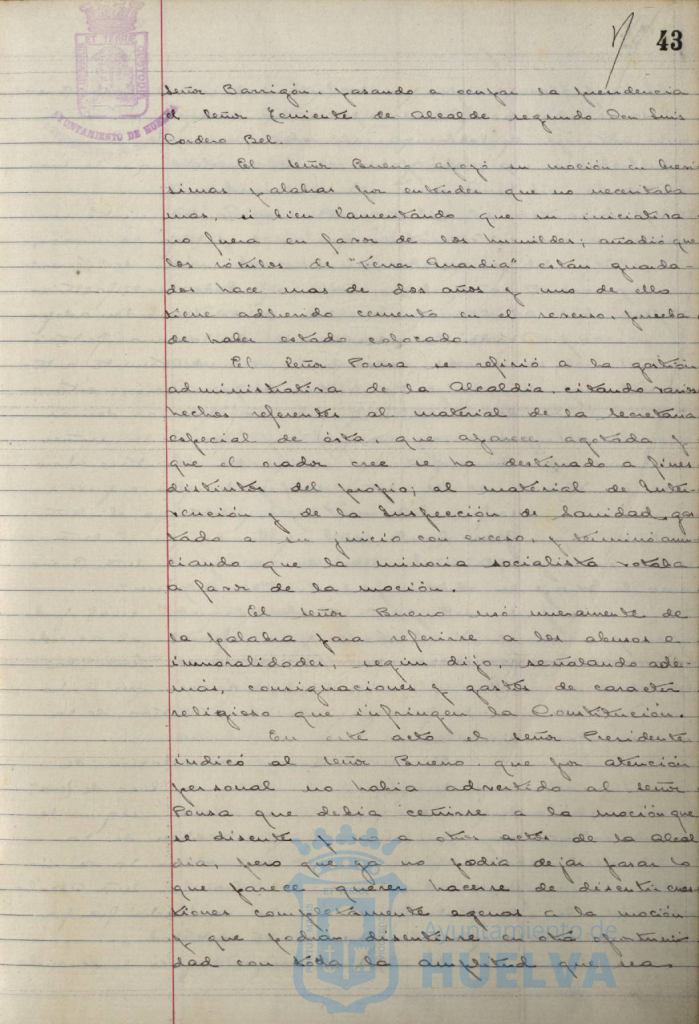 43
AYUNTAMIENTO DE HUELVA
señor Barrigón, pasando a ocupar la presidencia
el señor Teniente de Alcalde segundo Don Luis
Cordero Bel.
El señor Bueno apoyó su moción en breví
simas palabras por entender que no necesitaba
mas, si bien lamentando que su iniciativa
no fuera en favor de los humildes; añadió que
los rótulos de "Ferrer Guardia" están guarda
dos hace mas de dos años y uno de ellos
tiene adherido cemento en el reverso, prueba
de haber estado colocado.
El señor Ponsa se refirió a la gestión
administrativa de la Alcaldia, citando varios
hechos referentes al material de la Secretaria
especial de ésta, que aparece agotada y
que el orador cree se ha destinado a fines
distintos del propio; al material de Inter
vención y de la Inspección de Sanidad, gas
tado a su juicio con exceso, y terminó anun
ciando que la minoria socialista votaba
a favor de la moción.
El señor Bueno usó nuevamente de
la palabra para referirse a los abusos e
inmoralidades, según dijo, señalando ade-
más, consignaciones y gastos de caracter
religioso que infringen la Constitución.
En este acto el señor Presidente
indicó al señor Bueno que por atención
personal no habia advertido al señor
Ponsa que debia ceñirse a la moción que
se discute y no a otros actos de la Alcal
dia, pero que ya no podia dejar pasar lo
que parece querer hacerse de discutir cues
tiones completamente agenas a la moción
y que podrán discutirse en otra oportuni
dad con toda la amplitud que sea
Ayuntamiento de
HUELVA